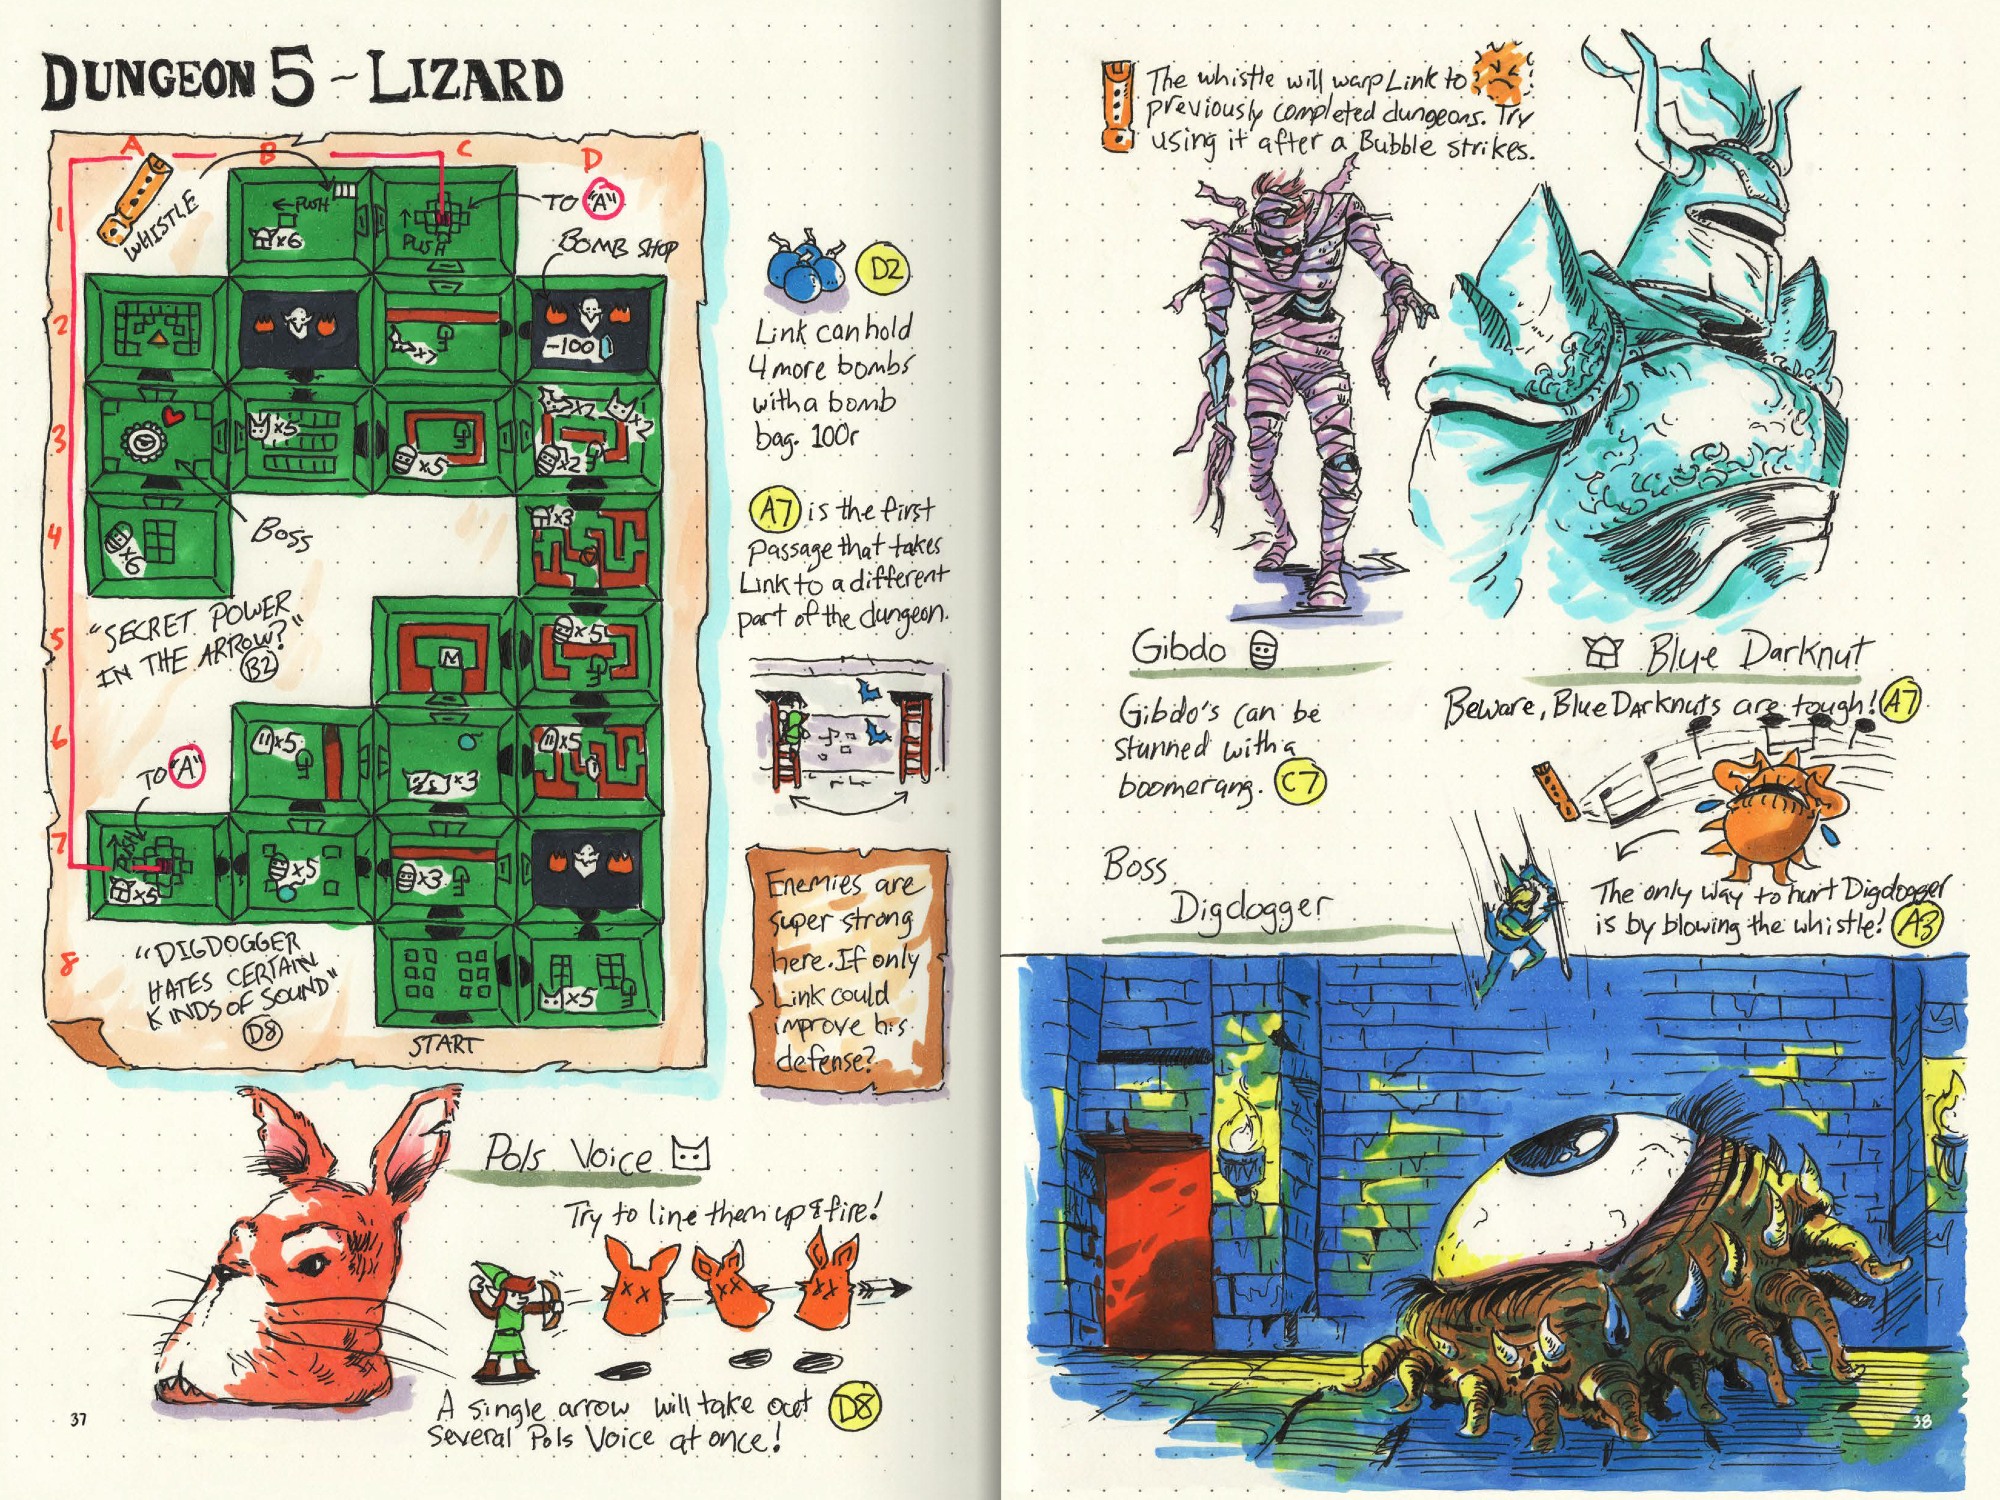 DUNGEON 5 ~ LIZARD
A B C D
1
2
3
4
5
6
7
8
WHISTLE
←PUSH
x6
PUSH
TO "A"
BOMB SHOP
x7
-100
x5
x5
x7
x2
x2
x6
BOSS
x3
"SECRET POWER
IN THE ARROW?"
B2
M
x5
x5
x3
x5
TO "A"
PUSH
x5
x5
x3
x5
"DIGDOGGER
HATES CERTAIN
KINDS OF SOUND"
D8
START
D2
Link can hold
4 more bombs
with a bomb
bag. 100r
A7 is the first
passage that takes
Link to a different
part of the dungeon.
Enemies are
super strong
here. If only
Link could
improve his
defense?
Pols Voice
Try to line them up & fire!
A single arrow will take out
several Pols Voice at once!
D8
37
The whistle will warp Link to
previously completed dungeons. Try
using it after a Bubble strikes.
Gibdo
Gibdo's can be
stunned with a
boomerang. C7
Blue Darknut
Beware, Blue Darknuts are tough! A7
Boss
Digdogger
The only way to hurt Digdogger
is by blowing the whistle! A3
38